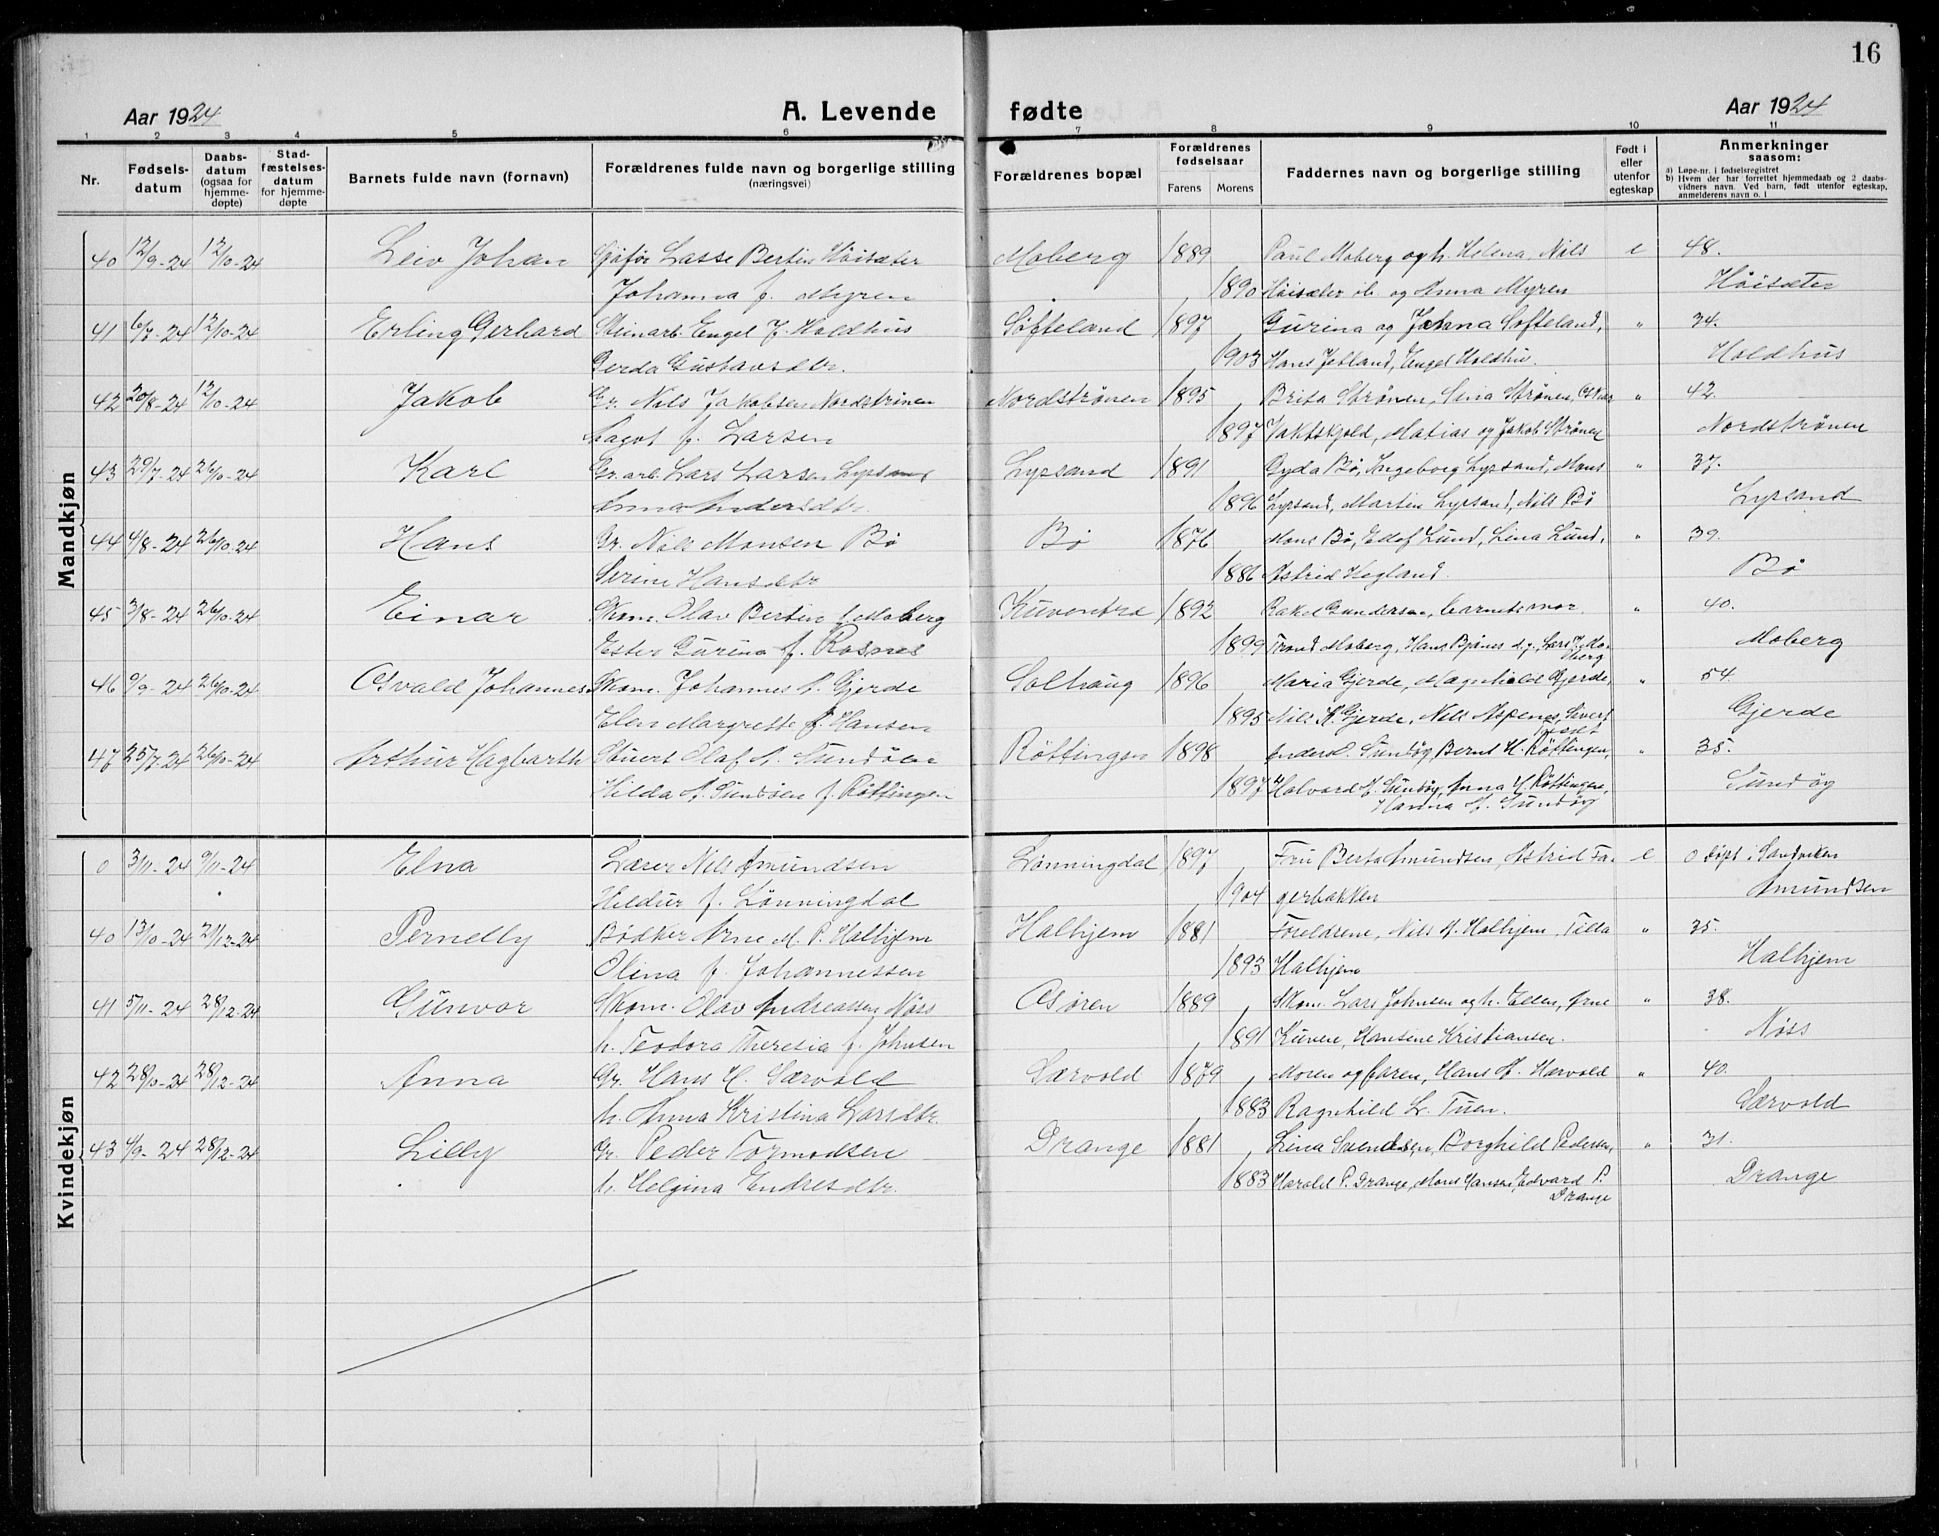 16
Aar 1924 A. Levende fødte Aar 1924
1 2 3 4 5 6 7 8 9 10 11
Nr. Fødsels-datum Daabs-datum (ogsaa for hjemme-døpte) Stad-fæstelses-datum for hjemme-døpte Barnets fulde navn (fornavn) Forældrenes fulde navn og borgerlige stilling (næringsvei) Forældrenes bopæl Forældrenes fødselsaar Farens Morens Faddernes navn og borgerlige stilling Født i eller utenfor egteskap Anmerkninger saasom:
a) Løpe-nr. i fødselsregistret
b) Hvem der har forrettet hjemmedaab og 2 daabs-vidners navn. Ved barn, født utenfor egteskap, anmelderens navn o. l
Mandkjøn
40 12/9-24 12/10-24 Leiv Johan Lasse Bertin Höisæter Moberg 1889 Paul Moberg og h. Helena, Nils e 48.
Johanna f. Myren 1890 Höisæter ib. og Anna Myren Höisæter
41 6/7-24 12/10-24 Erling Gerhard Minarb. Engel J. Holdhus Søfteland 1897 Gurina og Johna Søfteland, " 34.
Gerda Gustavsdtr. 1903 Hans Jetland, Engel Holdhu. Holdhus
42 20/8-24 12/10-24 Jakob Gr. Nils Jakobsen Nordstrønen Nordstrønen 1895 Brita Strønen, Lina Strønen, Oskar " 42.
Lagot f. Larsen 1897 Matias og Jakob Strønen Nordstrønen
43 29/7-24 26/10-24 Karl Gr. arb. Lars Larsen Lypsand Lypsand 1891 Gyda Bø, Ingeborg Lypsand, Mons " 37.
Anna Andersdtr. 1896 Lypsand, Martin Lypsand, Nils Bø Lypsand
44 4/8-24 26/10-24 Hans Gr. Nils Monsen Bø Bø 1876 Mons Bø, Edof Lund, Lina Lund, " 39.
Serine Hansdtr 1886 Astrid Hegland. Bø
45 3/8-24 26/10-24 Einar Skom. Olav Bertin J. Moberg Kuventræ 1892 Rakel Gundersen, barnets mor. " 40.
Ester Gurina f. Rosnes 1899 Trond Moberg, Hans Bjånes d.y. Lars J. Mo-berg Moberg
46 9/9-24 26/10-24 Osvald Johannes Skom. Johannes N. Gjerde Solhaug 1896 Maria Gjerde, Magnhild Gjerde, " 54.
Elen Margrete f. Hansen 1895 Nils N. Gjerde, Nils Aspenes, Sivert Gjerde
47 25/7-24 26/10-24 Arthur Hagbarth Stuert Olaf A. Sundöen Röttingen 1898 Anders A. Sundöy Bernt H. Röttingen, " 35.
Hilda A. Sundöen f. Röttingen 1897 Halvard A. Sundöy, Anna H. Röttingen, Sundöy
Hanna A. Sundöy
Kvindekjøn
0 3/11-24 9/11-24 Elna Lærer Nils Amundsen Lønningdal 1897 Fru Berta Amundsen, Astrid Fa- e 0 döpt i Sandviken
Hildur f. Lønningdal 1904 gerbakken Amundsen
40 13/10-24 21/12-24 Pernelly Bödker Arne M. P. Halhjem Halhjem 1881 Foreldrene, Nils A. Halhjem, Tilla " 35.
Olina f. Johannessen 1893 Halhjem Halhjem
41 5/11-24 28/12-24 Gunvor Skom. Olav Andreassen Nöss Osøren 1889 Skom. Lars Johnsen og h. Ellen, Arne " 38.
h. Teodora Theresia f. Johnsen 1891 Kuven, Hansine Kristiansen. Nöss
42 28/10-24 28/12-24 Anna Gr. Hans H Særvold Særvold 1879 Moren og faren, Hans A. Hærvold " 40.
h. Anna Kristina Larsdtr. 1883 Ragnhild L. Tuen. Særvold
43 4/9-24 28/12-24 Lilly Gr. Peder Tormodsen Drange 1881 Lina Svendsen, Borghild Pedersen, " 31.
h. Helgina Endresdtr. 1883 Harald P. Drange, Mons Hansen, Edvard P. Drange Drange